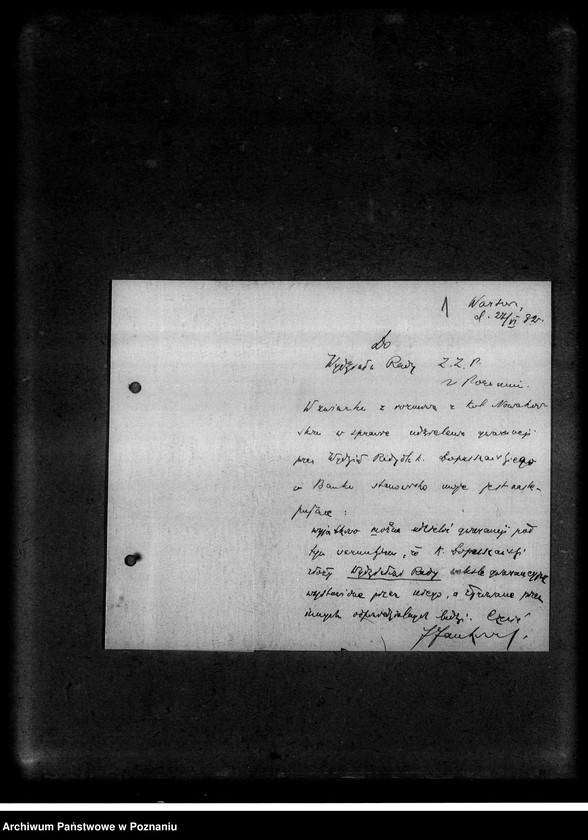 1
Warszawa,
d. 27/VI 32.
Do
Wydziału Rady Z.Z.P.
w Poznaniu.
W związku z rozmową z kol. Nowakow-
skim w sprawie udzielenia gwarancji
przez Wydział Rady dla k.
w Banku stanowisko moje jest nastę-
pujące:
wyjątkowo można udzielić gwarancji pod
tym warunkiem, że K.
złoży Wydziałowi Rady weksle gwarancyjne
wystawione przez niego, a żyrowane przez
innych odpowiedzialnych ludzi. Cześć!
Archiwum Państwowe w Poznaniu